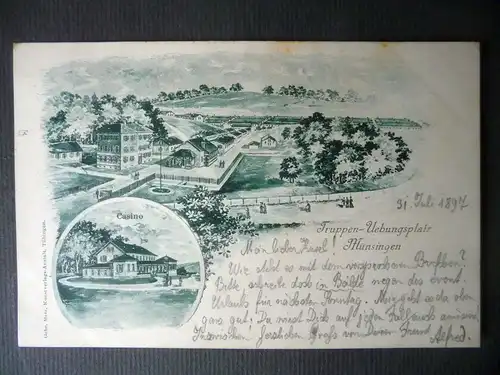 Casino
31. Juli 1897
Truppen-Uebungsplatz
Münsingen
Mein lieber Hansel!
Wie steht es mit dem versprochenen
Bitte, schreibe doch in Bälde wegen des event.
Urlaubs für nächsten Sonntag. Mir geht es da oben
ganz gut! Du wirst Dich auf jeden Fall
herzlichen Gruß von Deinem Freund Alfred.
Gebr. Metz, Kunstverlags-Anstalt, Tübingen.